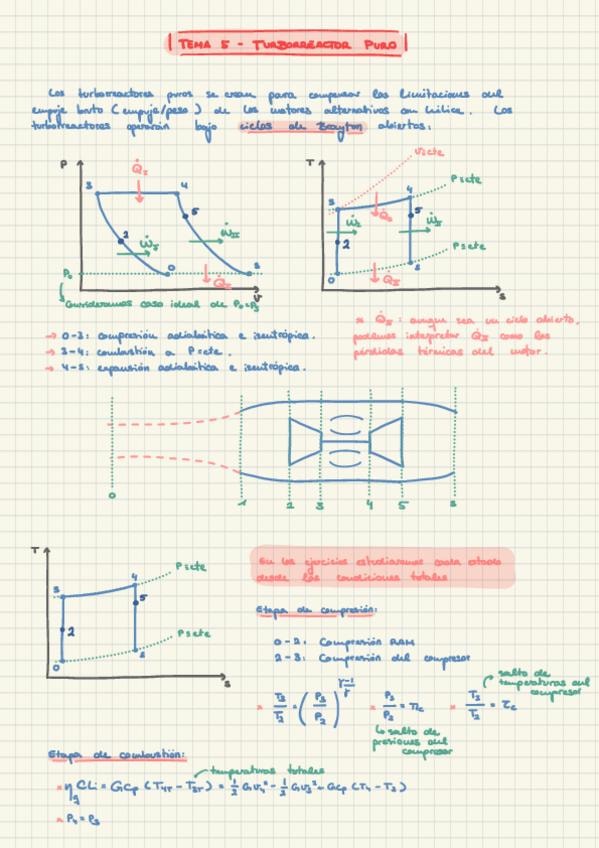 TEMA 5 - TURBORREACTOR PURO
Los turborreactores puros se crean para compensar las limitaciones del
empuje bruto (empuje/peso) de los motores alternativos con hélice. Los
turborreactores operarán bajo ciclos de Brayton abiertos:
P
3
4
5
2
0
s
P₀
V
T
vcte
Pcte
3
4
5
2
Pcte
0
s
s
Consideramos caso ideal de P₀=Ps
→ 0-3: compresión adiabática e isentrópica.
→ 3-4: combustión a Pcte.
→ 4-s: expansión adiabática e isentrópica.
: aunque sea un ciclo abierto,
podemos interpretar como las
pérdidas térmicas del motor.
0 1 2 3 4 5 s
T
3
4
Pcte
5
2
Pcte
0
s
s
En los ejercicios estudiaremos cada estado
desde las condiciones totales
Etapa de compresión:
0-2: Compresión RAM
2-3: Compresión del compresor
salto de
temperaturas del
compresor
× T₃/T₂ = (P₃/P₂)^((γ-1)/γ) × P₃/P₂ = πc × T₃/T₂ = τc
salto de
presiones del
compresor
Etapa de combustión:
temperaturas totales
× P₄ = P₃